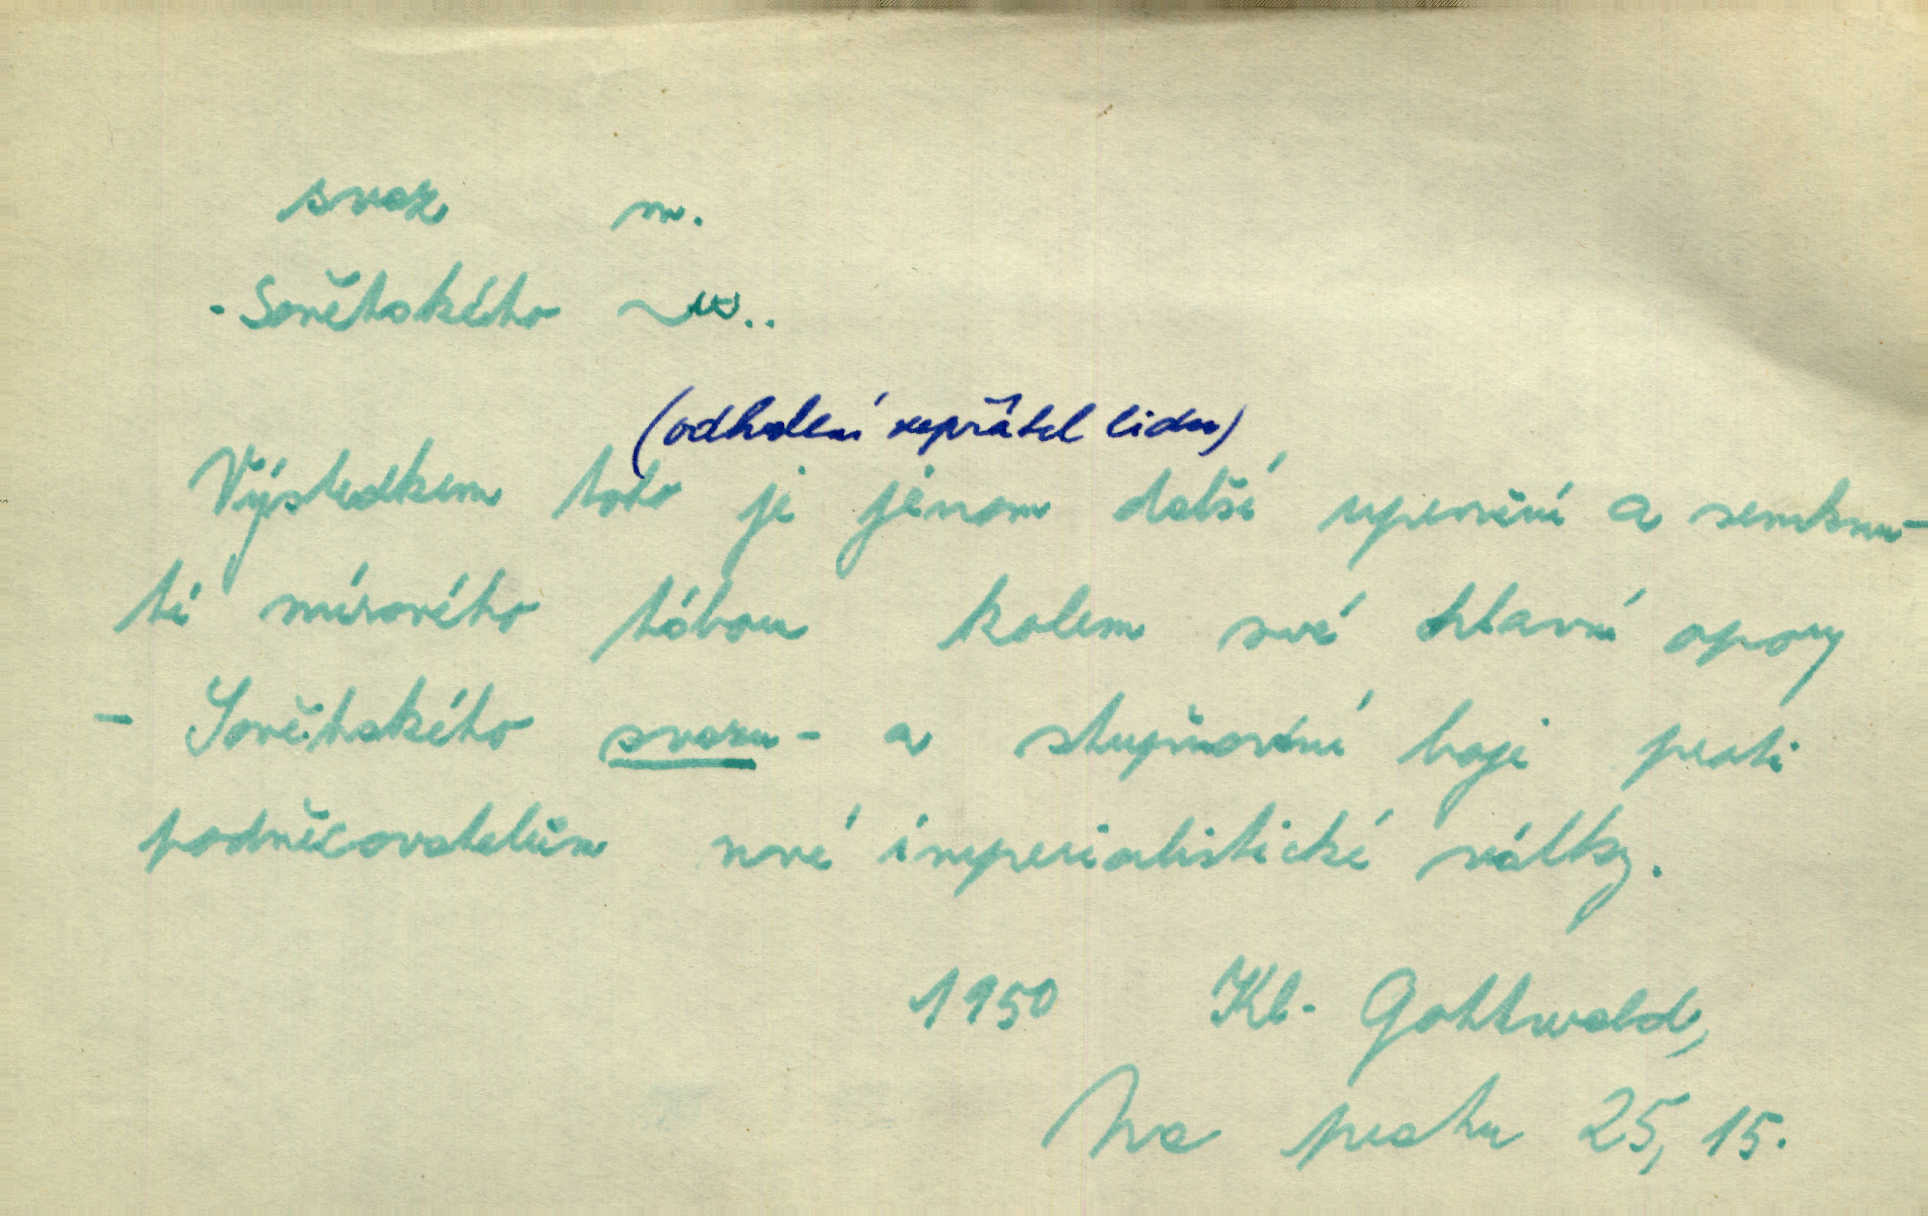 svaz m.
- Sovětského ~ u..
(odhalení nepřátel lidu)
Výsledkem toho je jenom další upevnění a semknu-
tí mírového tábora kolem své hlavní opory
- Sovětského svazu - a stupňování boje proti
podněcovatelům nové imperialistické války.
1950 Kl. Gottwald,
Na prahu 25, 15.